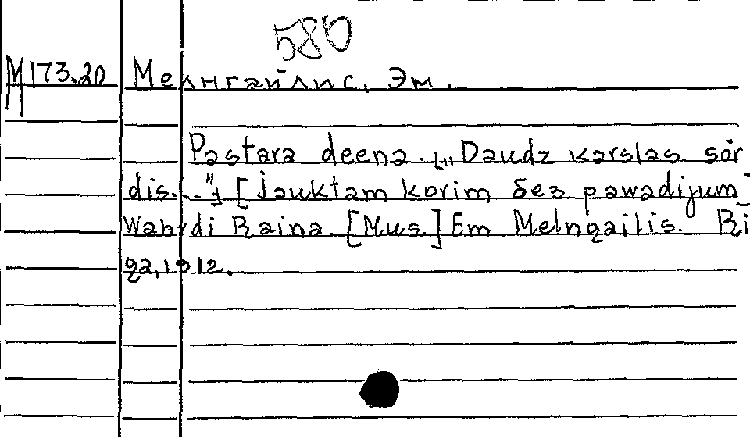 580
М173.20 Мелнгайлис, Эм.
Pastara deena. [„Daudz karstas sar
dis..."] [Jauktam korim без pawadijum
Wahrdi Raina. [Mus.] Em Melngailis. Ri
ga, 1912.